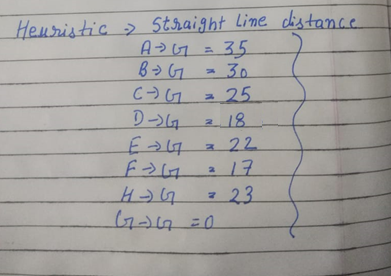 Heuristic → Straight line distance
A → G = 35
B → G = 30
C → G = 25
D → G = 18
E → G = 22
F → G = 17
H → G = 23
G → G = 0